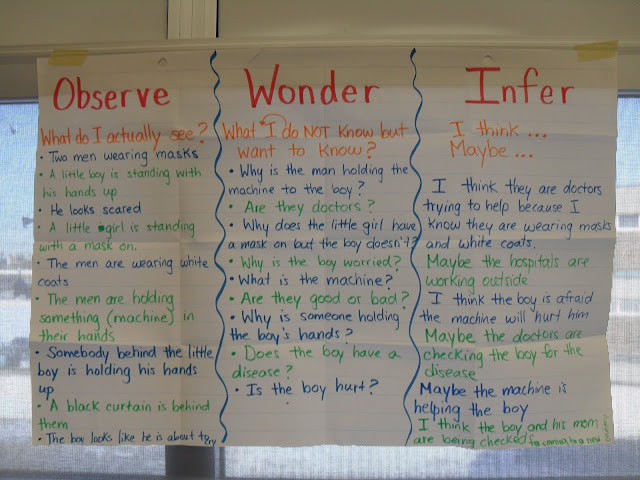 Observe
What do I actually see?
• Two men wearing masks
• A little boy is standing with
his hands up
• He looks scared
• A little girl is standing
with a mask on.
• The men are wearing white
coats
• The men are holding
something (machine) in
their hands
• Somebody behind the little
boy is holding his hands
up
• A black curtain is behind
them
• The boy looks like he is about to cry
Wonder
What I do NOT know but
want to know?
• Why is the man holding the
machine to the boy?
• Are they doctors?
• Why does the little girl have
a mask on but the boy doesn't?
• Why is the boy worried?
• What is the machine?
• Are they good or bad?
• Why is someone holding
the boy's hands?
• Does the boy have a
disease?
• Is the boy hurt?
Infer
I think ...
Maybe ...
I think they are doctors
trying to help because I
know they are wearing masks
and white coats.
Maybe the hospitals are
working outside
I think the boy is afraid
the machine will hurt him
Maybe the doctors are
checking the boy for the
disease
Maybe the machine is
helping the boy
I think the boy and his mom
are being checked for coming to a new